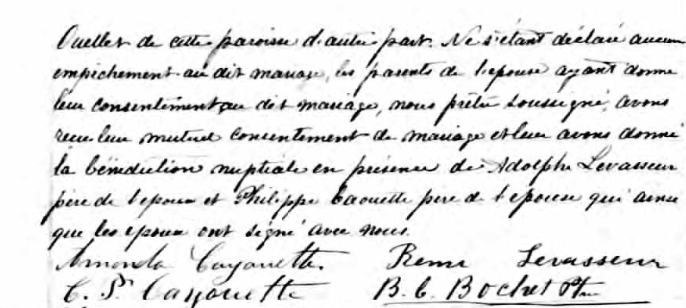 Ouellet de cette paroisse d'autre part. Ne s'étant déclaré aucun
empêchement au dit mariage, les parents de l'epouse ayant donné
leur consentiment au dit mariage, nous prêtre soussigné, avons
recu leur mutuel consentement de mariage et leur avons donné
la bénédiction nuptiale en présence de Adolphe Levasseur
père de l'epoux et Philippe Caouette père de l'epouse qui ainsi
que les epoux ont signé avec nous.
Amanda Cayouette. Remi Levasseur
C. P. Cayouette B. C. Bochet Ptre